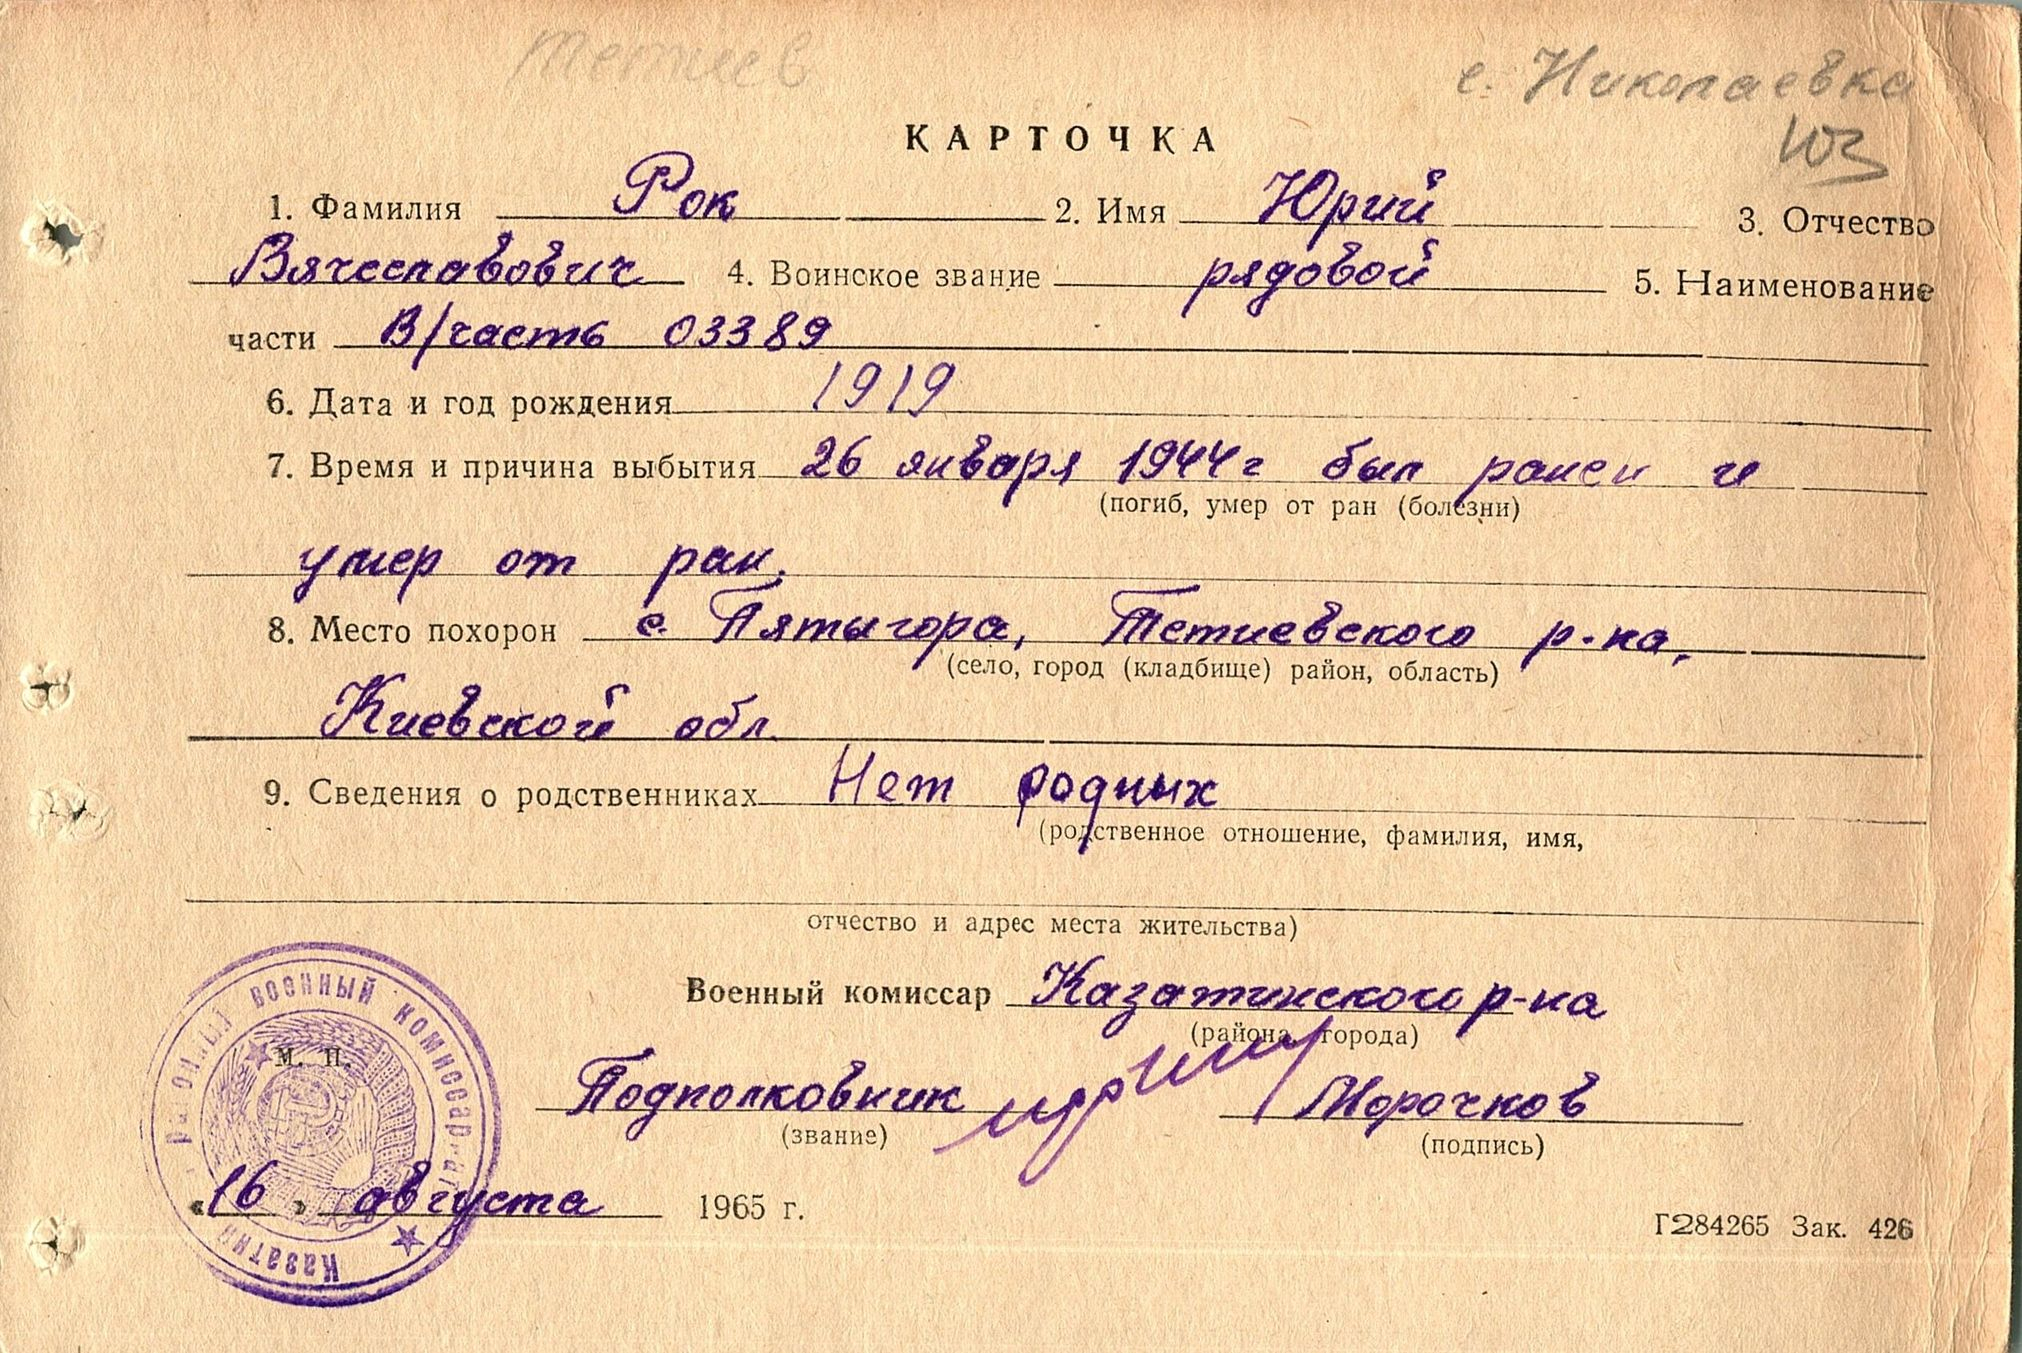 Тетиев
с. Николаевка
ЮЗ
КАРТОЧКА
1. Фамилия Рок 2. Имя Юрий 3. Отчество
Вячеславович 4. Воинское звание рядовой 5. Наименование
части В/часть 03389
6. Дата и год рождения 1919
7. Время и причина выбытия 26 января 1944 г был ранен и
(погиб, умер от ран (болезни)
умер от ран.
8. Место похорон с. Пятыгора, Тетиевского р-на,
(село, город (кладбище) район, область)
Киевской обл.
9. Сведения о родственниках Нет родных
(родственное отношение, фамилия, имя,
отчество и адрес места жительства)
Военный комиссар Казатинского р-на
(района, города)
М. П.
Подполковник Морочков
(звание) (подпись)
«16» августа 1965 г.
Г284265 Зак. 426
районный военный комиссариат
Казатин